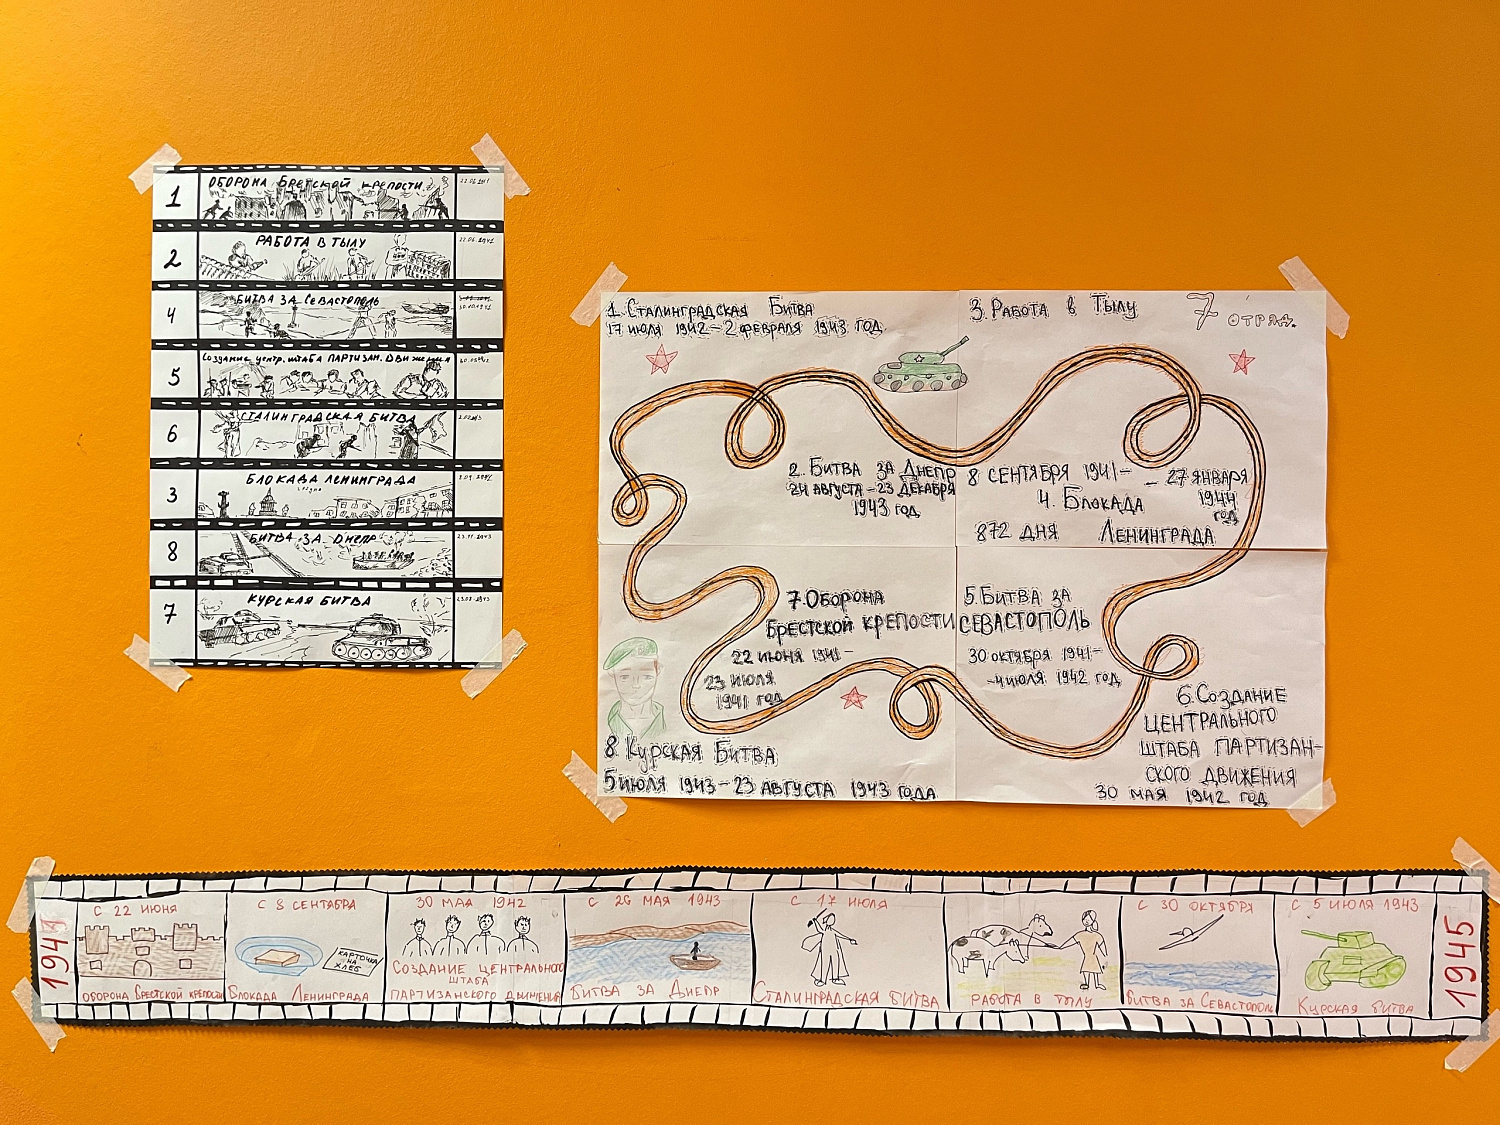 1
ОБОРОНА БРЕСТСКОЙ КРЕПОСТИ.
2
РАБОТА В ТЫЛУ
22.06.1941
4
БИТВА ЗА СЕВАСТОПОЛЬ
30.10.1941
5
Создание центр. штаба ПАРТИЗАН. ДВИЖЕНИЯ
6
СТАЛИНГРАДСКАЯ БИТВА
3
БЛОКАДА ЛЕНИНГРАДА
8
БИТВА ЗА ДНЕПР
7
КУРСКАЯ БИТВА
23.08.1943
1. СТАЛИНГРАДСКАЯ БИТВА
17 ИЮЛЯ 1942 – 2 ФЕВРАЛЯ 1943 ГОД.
3. РАБОТА В ТЫЛУ
7 ОТРЯД.
2. БИТВА ЗА ДНЕПР
24 АВГУСТА – 23 ДЕКАБРЯ
1943 ГОД
8 СЕНТЯБРЯ 1941 – – 27 ЯНВАРЯ
1944
ГОД
4. БЛОКАДА
872 ДНЯ ЛЕНИНГРАДА
7. ОБОРОНА
БРЕСТСКОЙ КРЕПОСТИ
22 ИЮНЯ 1941 –
23 ИЮЛЯ
1941 ГОД
5. БИТВА ЗА
СЕВАСТОПОЛЬ
30 ОКТЯБРЯ 1941 –
– 4 ИЮЛЯ 1942 ГОД
6. СОЗДАНИЕ
ЦЕНТРАЛЬНОГО
ШТАБА ПАРТИЗАН-
СКОГО ДВИЖЕНИЯ
30 МАЯ 1942 ГОД
8. КУРСКАЯ БИТВА
5 ИЮЛЯ 1943 – 23 АВГУСТА 1943 ГОДА
1941
С 22 ИЮНЯ
ОБОРОНА БРЕСТСКОЙ КРЕПОСТИ
С 8 СЕНТЯБРЯ
КАРТОЧКА
НА
ХЛЕБ
БЛОКАДА ЛЕНИНГРАДА
30 МАЯ 1942
СОЗДАНИЕ ЦЕНТРАЛЬНОГО
ШТАБА
ПАРТИЗАНСКОГО ДВИЖЕНИЯ
С 26 МАЯ 1943
БИТВА ЗА ДНЕПР
С 17 ИЮЛЯ
СТАЛИНГРАДСКАЯ БИТВА
РАБОТА В ТЫЛУ
С 30 ОКТЯБРЯ
БИТВА ЗА СЕВАСТОПОЛЬ
С 5 ИЮЛЯ 1943
КУРСКАЯ БИТВА
1945